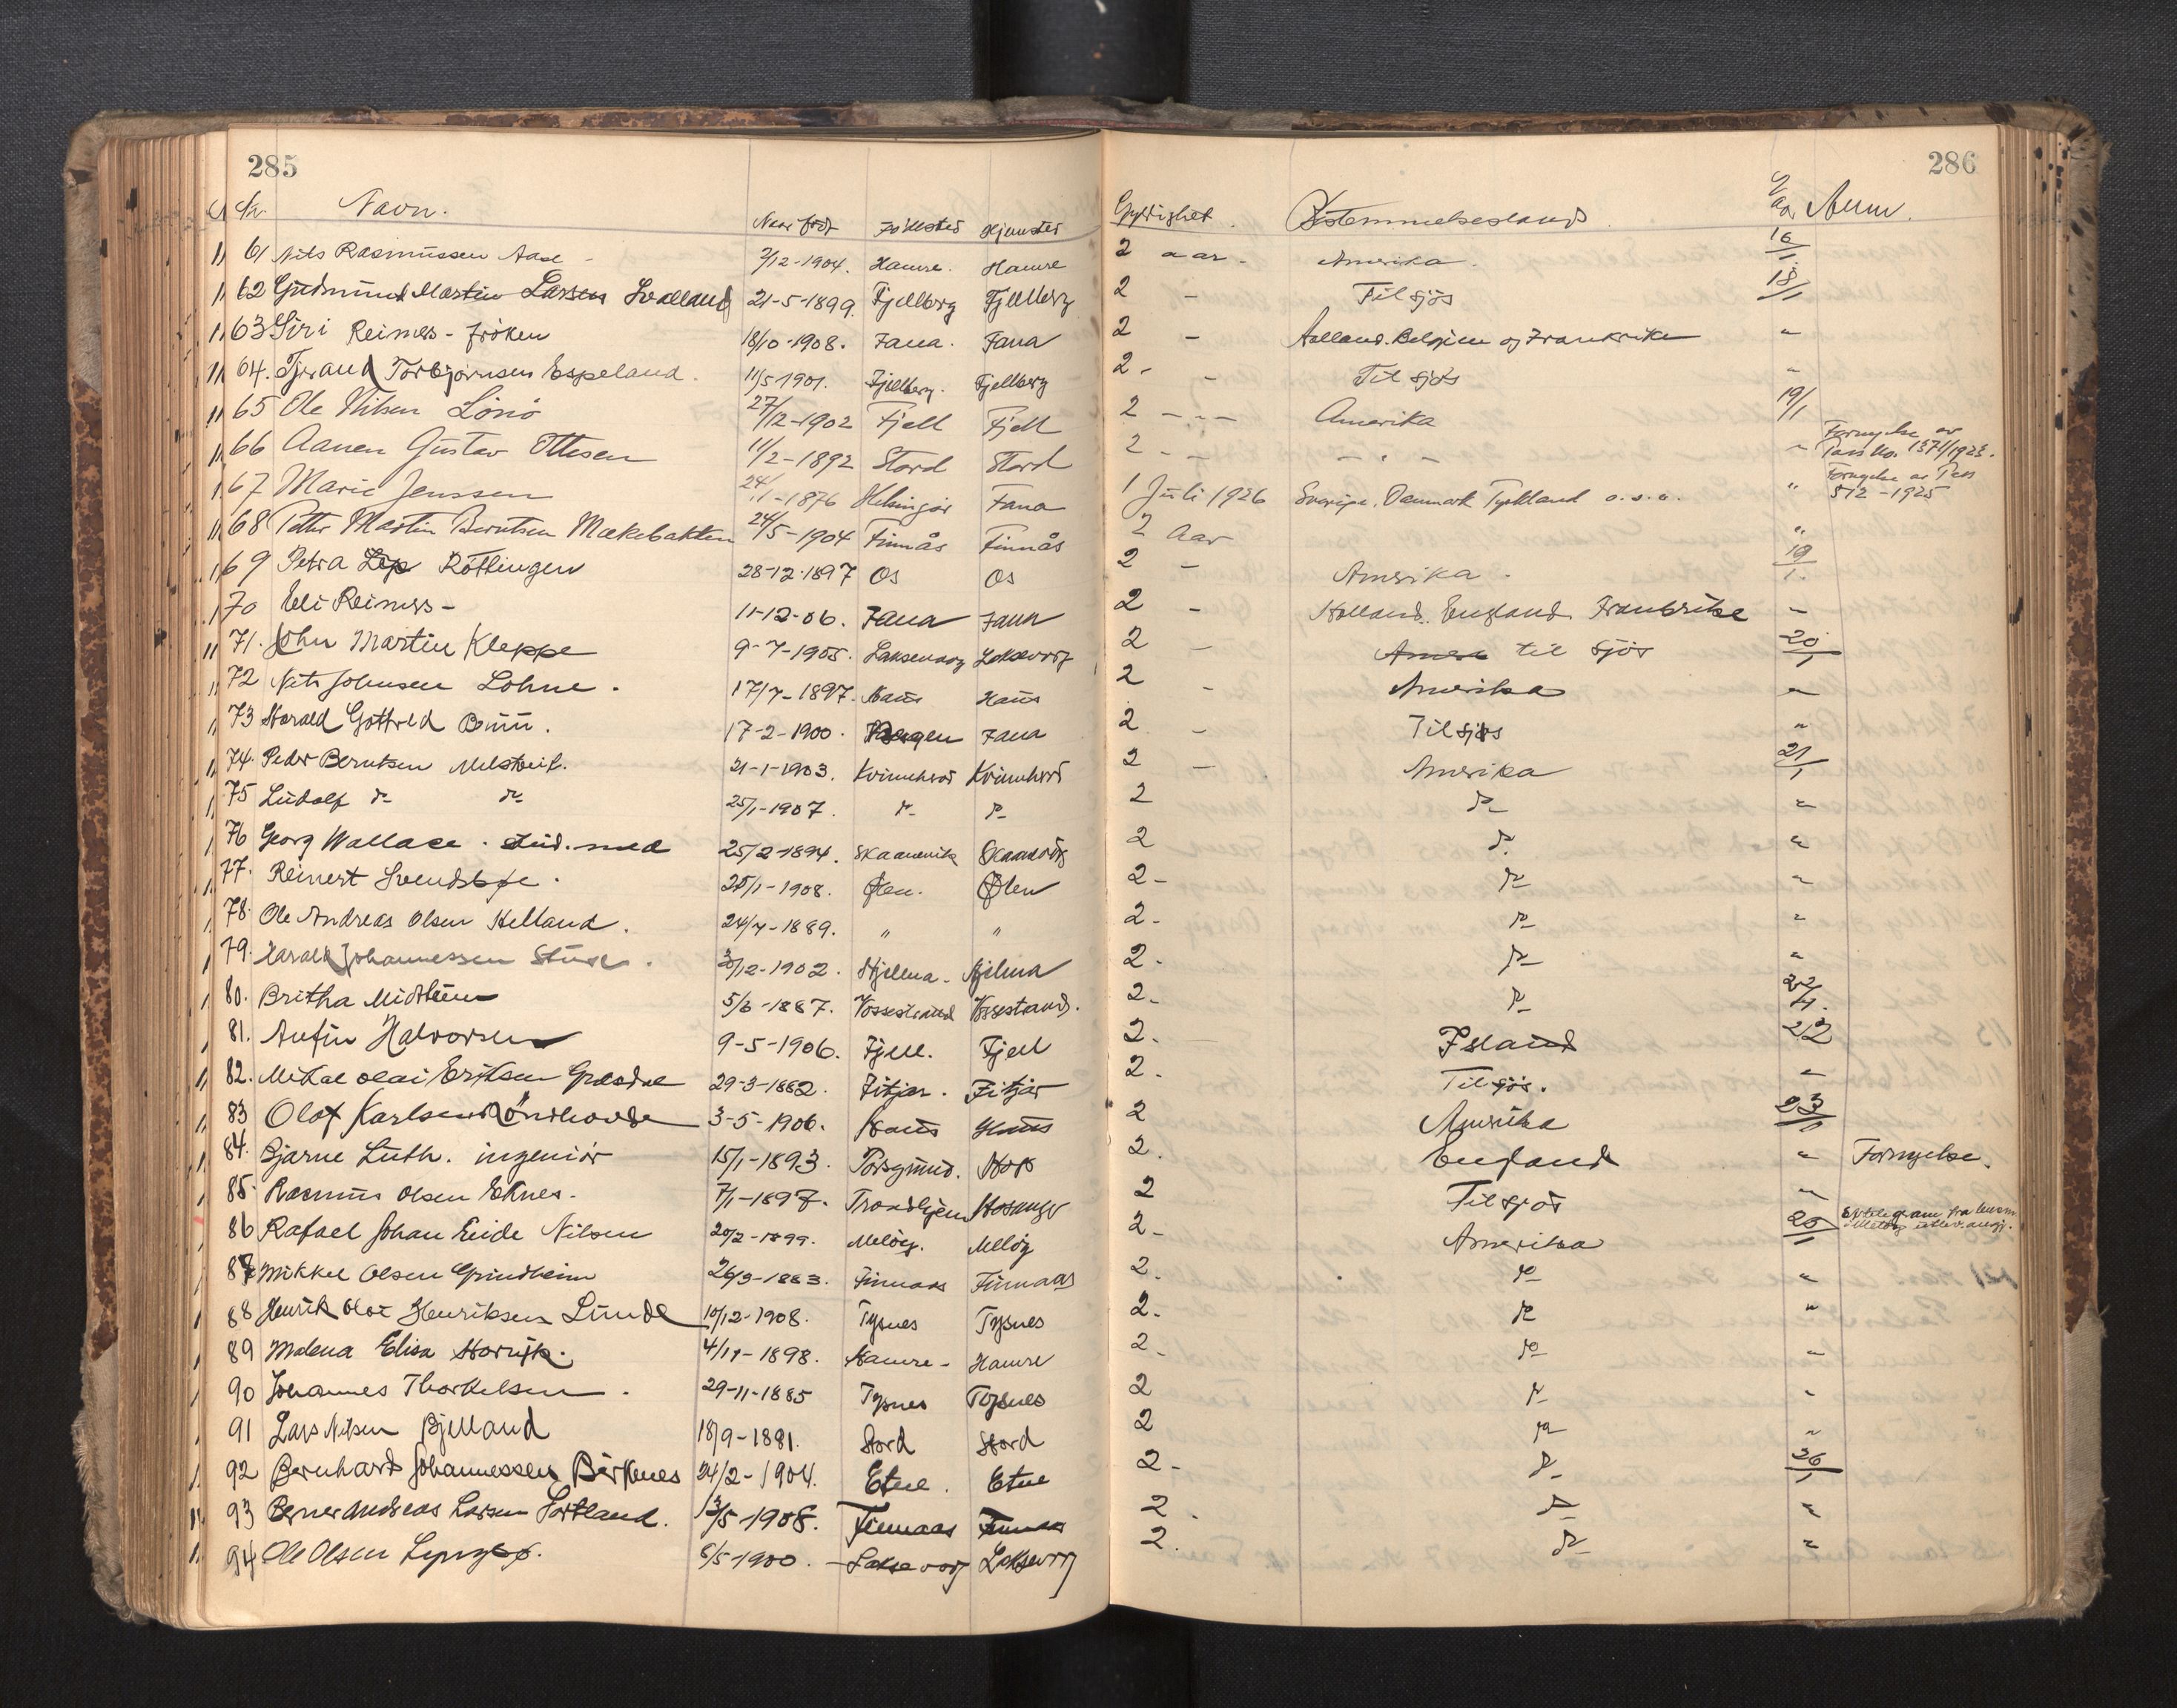 285 286
Nr. Navn. Naar født Fødested Hjemsted Gyldighet Bestemmelsesland Anm.
61 Nils Rasmussen Aase 2/12-1904. Hamre. Hamre 2 aar - Amerika. 16/1
62 Gudmund Martin Larsen Svalland 21-5-1899. Fjelberg Fjelberg 2 - Til sjøs 18/1
63 Siri Reimers - frøken 18/10-1908. Fana. Fana 2 - Holland. Belgien og Frankrike "
64. Torbjørnsen Espeland. 11/5 1901. Fjelberg. Fjelberg 2 - - Til sjøs "
65 Ole Nilsen Lönö 27/12-1902 Fjell Fjell 2 - - - Amerika 19/1
66 Aanen Gustav Ottesen 11/2-1892 Stord Stord 2 - - - " - " Fornyelse av Pass No. 1571/1923.
67 Marie Jenssen 24/11-1876 Helsingör Fana 1 Juli 1926 Sverige, Danmark Tyskland o.s.v. " Fornyelse av Pass 572-1925
68 Petter Martin Berntsen Mækebakken 24/5-1904 Finnås Finnås 2 Aar "
69 Petra Röttingen 28-12-1897 Os Os 2 - Amerika. 19/1.
70 Elli Reimers - 11-12-06. Fana Fana 2 - Holland. England Frankrike "
71. John Martin Kleppe 9-7-1905. Laksevaag Laksevaag 2 - til sjös 20/1
72 Nils Johnsen Lohne. 17/7-1897. Haus Haus 2 - Amerika "
73 Harald Gotfred Bruu. 17-2-1900. Bergen Fana 2 - Til sjøs "
74. Peder Berntsen Melstveit. 21-1-1903. Kvinnherad Kvinnherad 2 - Amerika 21/1
75 Ludolf do do 25/1-1907. do do 2 do "
76 Georg Wallace. stud. med 25/2-1894. Skaanevik Skaanevik 2 do "
77. Reinert Svendsbøe. 25/1-1908. Ølen. Ølen 2- do "
78. Ole Andreas Olsen Helland. 24/7-1889. " " 2- do "
79. Harald Johannessen Stuve. 30/12-1902. Hjelma. Hjelma 2. do "
80. Britha Midttun 5/6-1887. Vossestrand Vossestrand. 2- do 22/1.
81. Anfin Halvorsen 9-5-1906. Fjell. Fjell 2. Island 23
82. Mikal Olai Eriksen 29-3-1882. Fitjar. Fitjar 2. Til sjøs. "
83 Olaf Karlsen 3-5-1906. Haus Haus 2 Amerika 23/1
84. Bjarne Luth. ingeniör 15/1-1893. Porsgrund. Hop 2. England " Fornyelse.
85. Rasmus Olsen Eknes. 7/1-1897. Trondhjem Hosanger 2 Til sjøs "
86 Rafael Johan Eide Nilsen 20/2-1899. Meløy. Meløy 2- Amerika 25/1
87 Mikkel Olsen Grindheim 26/3-1883. Finnaas Finnaas 2. do "
88 Henrik Olai Henriksen Lunde 10/12-1908. Tysnes Tysnes 2. do "
89 Malena Elisa Storvik. 4/11-1898. Hamre - Hamre 2- do "
90 Johannes Thorkelsen. 29-11-1885 Tysnes Tysnes 2 do "
91 Lars Nilsen Bjelland 18/9-1881. Stord Stord 2 do "
92 Bernhard Johannessen Birkenes 24/2-1904. Etne. Etne 2- do 26/1
93 Berner Andreas Larsen Sortland. 13/5-1908. Finnaas Finnaas 2. do "
94 Ole Olsen Lyngbø. 6/5-1900. - Laksevaag Laksevaag 2. do "